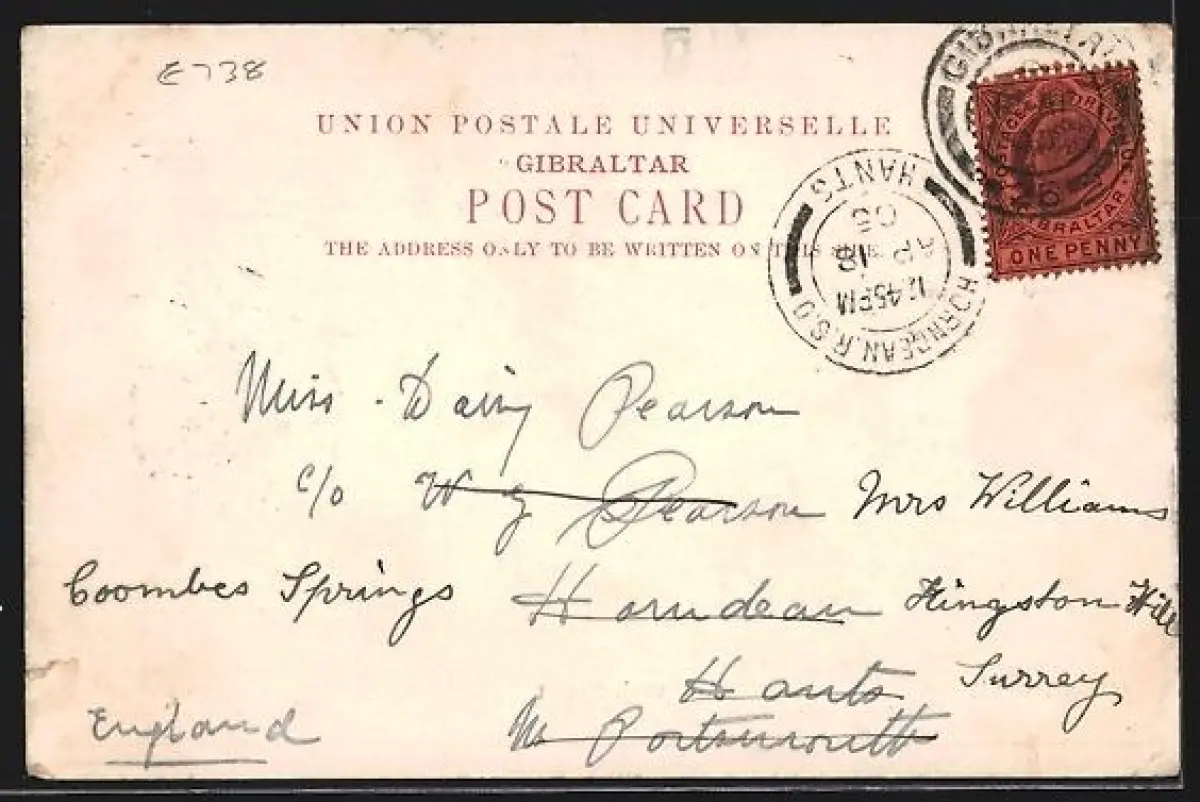 E738
UNION POSTALE UNIVERSELLE
GIBRALTAR
POST CARD
THE ADDRESS ONLY TO BE WRITTEN ON THIS
GIBRALTAR
POSTAGE & REVENUE
GIBRALTAR
ONE PENNY
HORNDEAN.R.S.O
HANTS
12.45PM
AP 18
05
Miss Daisy Pearson
c/o W g Pearson Mrs Williams
Coombes Springs Horndean Kingston Hill
Hants Surrey
England Nr Portsmouth